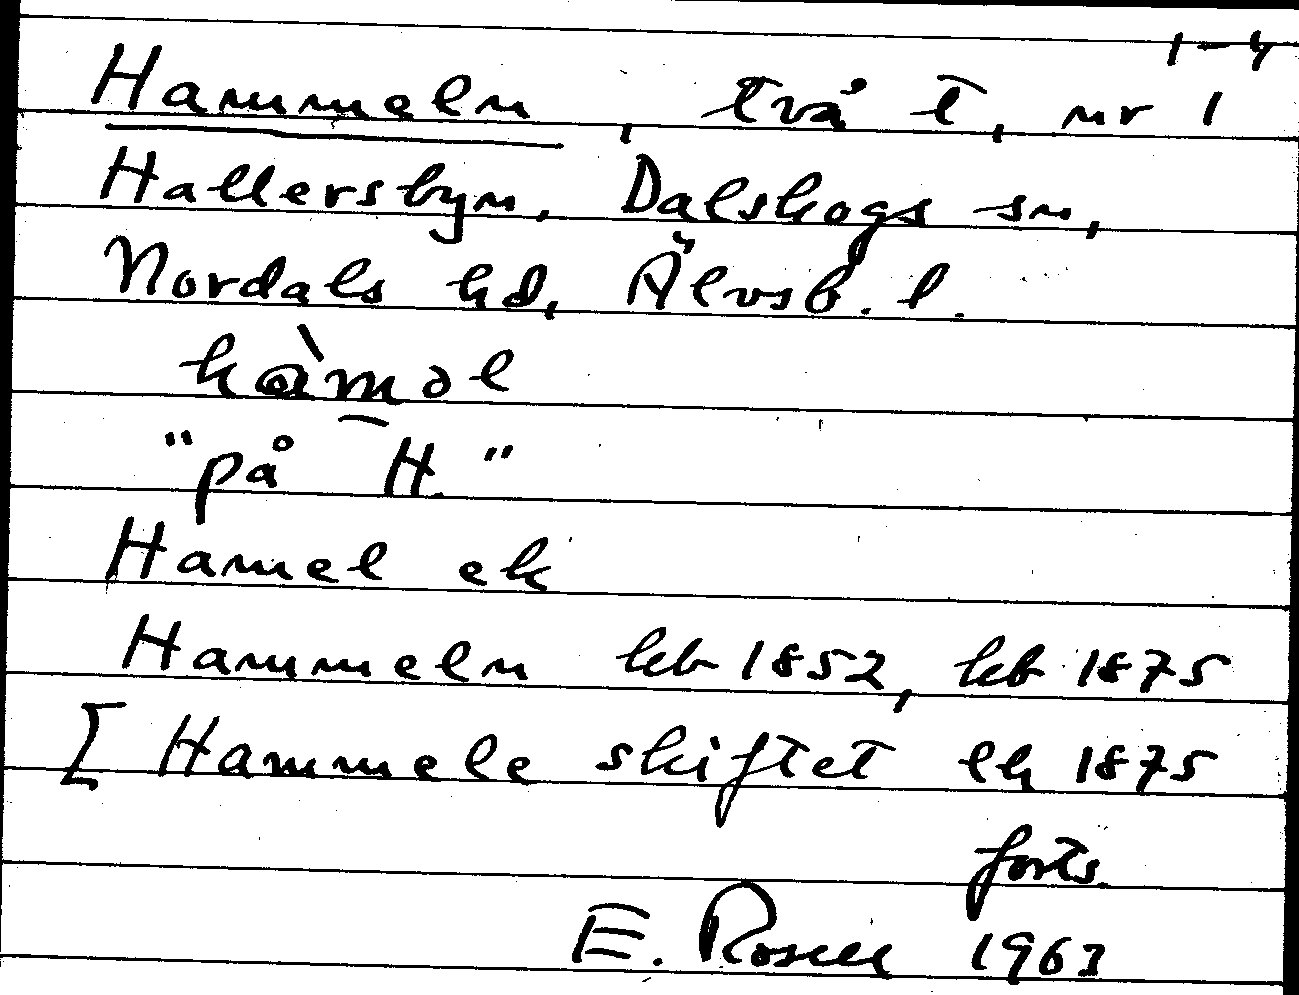 1-4
Hammeln, två t, nr 1
Hallersbyn, Dalskogs sn,
Nordals hd, Älvsb. l.
"på H."
Hamel ek
Hammeln lkb 1852, lkb 1875
[ Hammele skiftet lk 1875
forts.
E. Rosell 1963